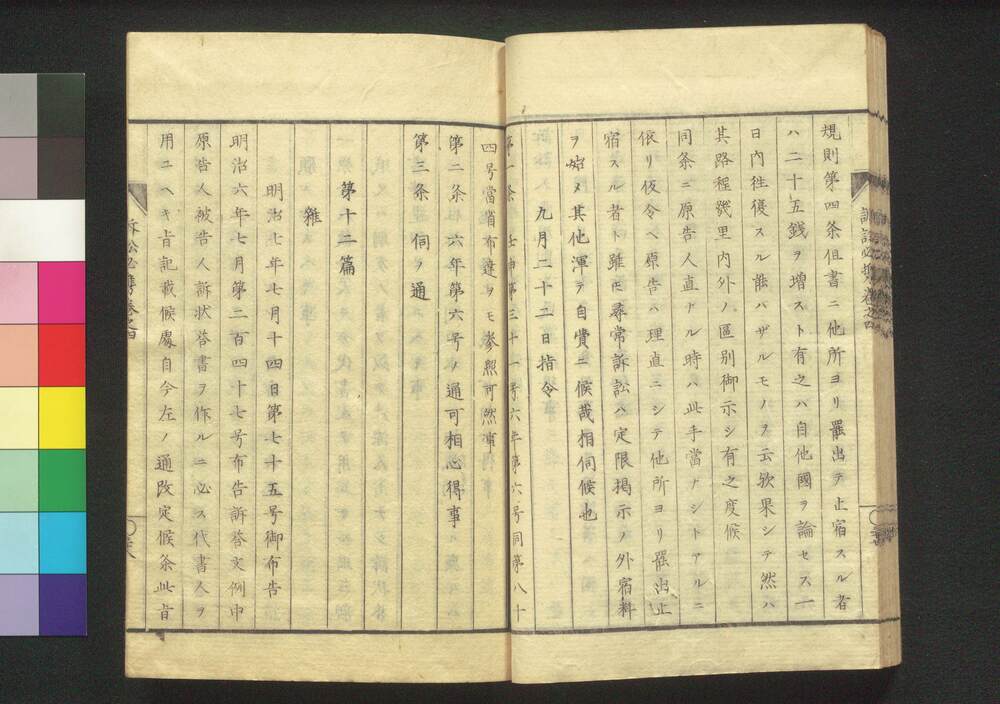 規則第四条但書ニ他所ヨリ罷出テ止宿スル者
ハ二十五銭ヲ増スト有之ハ自他國ヲ論セス一
日内往復スル能ハザルモノヲ云欤果シテ然ハ
其路程幾里内外ノ區別御示シ有之度候
同条ニ原告人直ナル時ハ此手當ナシトアルニ
依リ仮令ヘ原告ハ理直ニシテ他所ヨリ罷出止
宿スル者ト雖𪜈尋常訴訟ハ定限掲示ノ外宿料
ヲ始メ其他渾テ自費ニ候哉相伺候也
九月二十二日指令
第一条 壬申第三十一号六年第六号同第八十
四号當省布達ヲモ参照可然事
第二条 六年第六号ノ通可相心得事
第三条 伺ノ通
第十二篇
雜
明治七年七月十四日第七十五号御布告
明治六年七月第二百四十七号布告訴答文例中
原告人被告人訴状答書ヲ作ルニ必ス代書人ヲ
用ユヘキ旨記載候處自今左ノ通改定候条此旨
訴訟必携卷之四